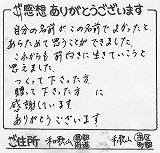 ご感想 ありがとうございます
自分の名前がこの名前でよかったと
あらためて思うことができました。
これからも前向きに生きていこうと
思えました。
つくって下さった方
贈って下さった方に
感謝しています
ありがとうございます
ご住所 和歌山 都道府県 和歌山 市区町村